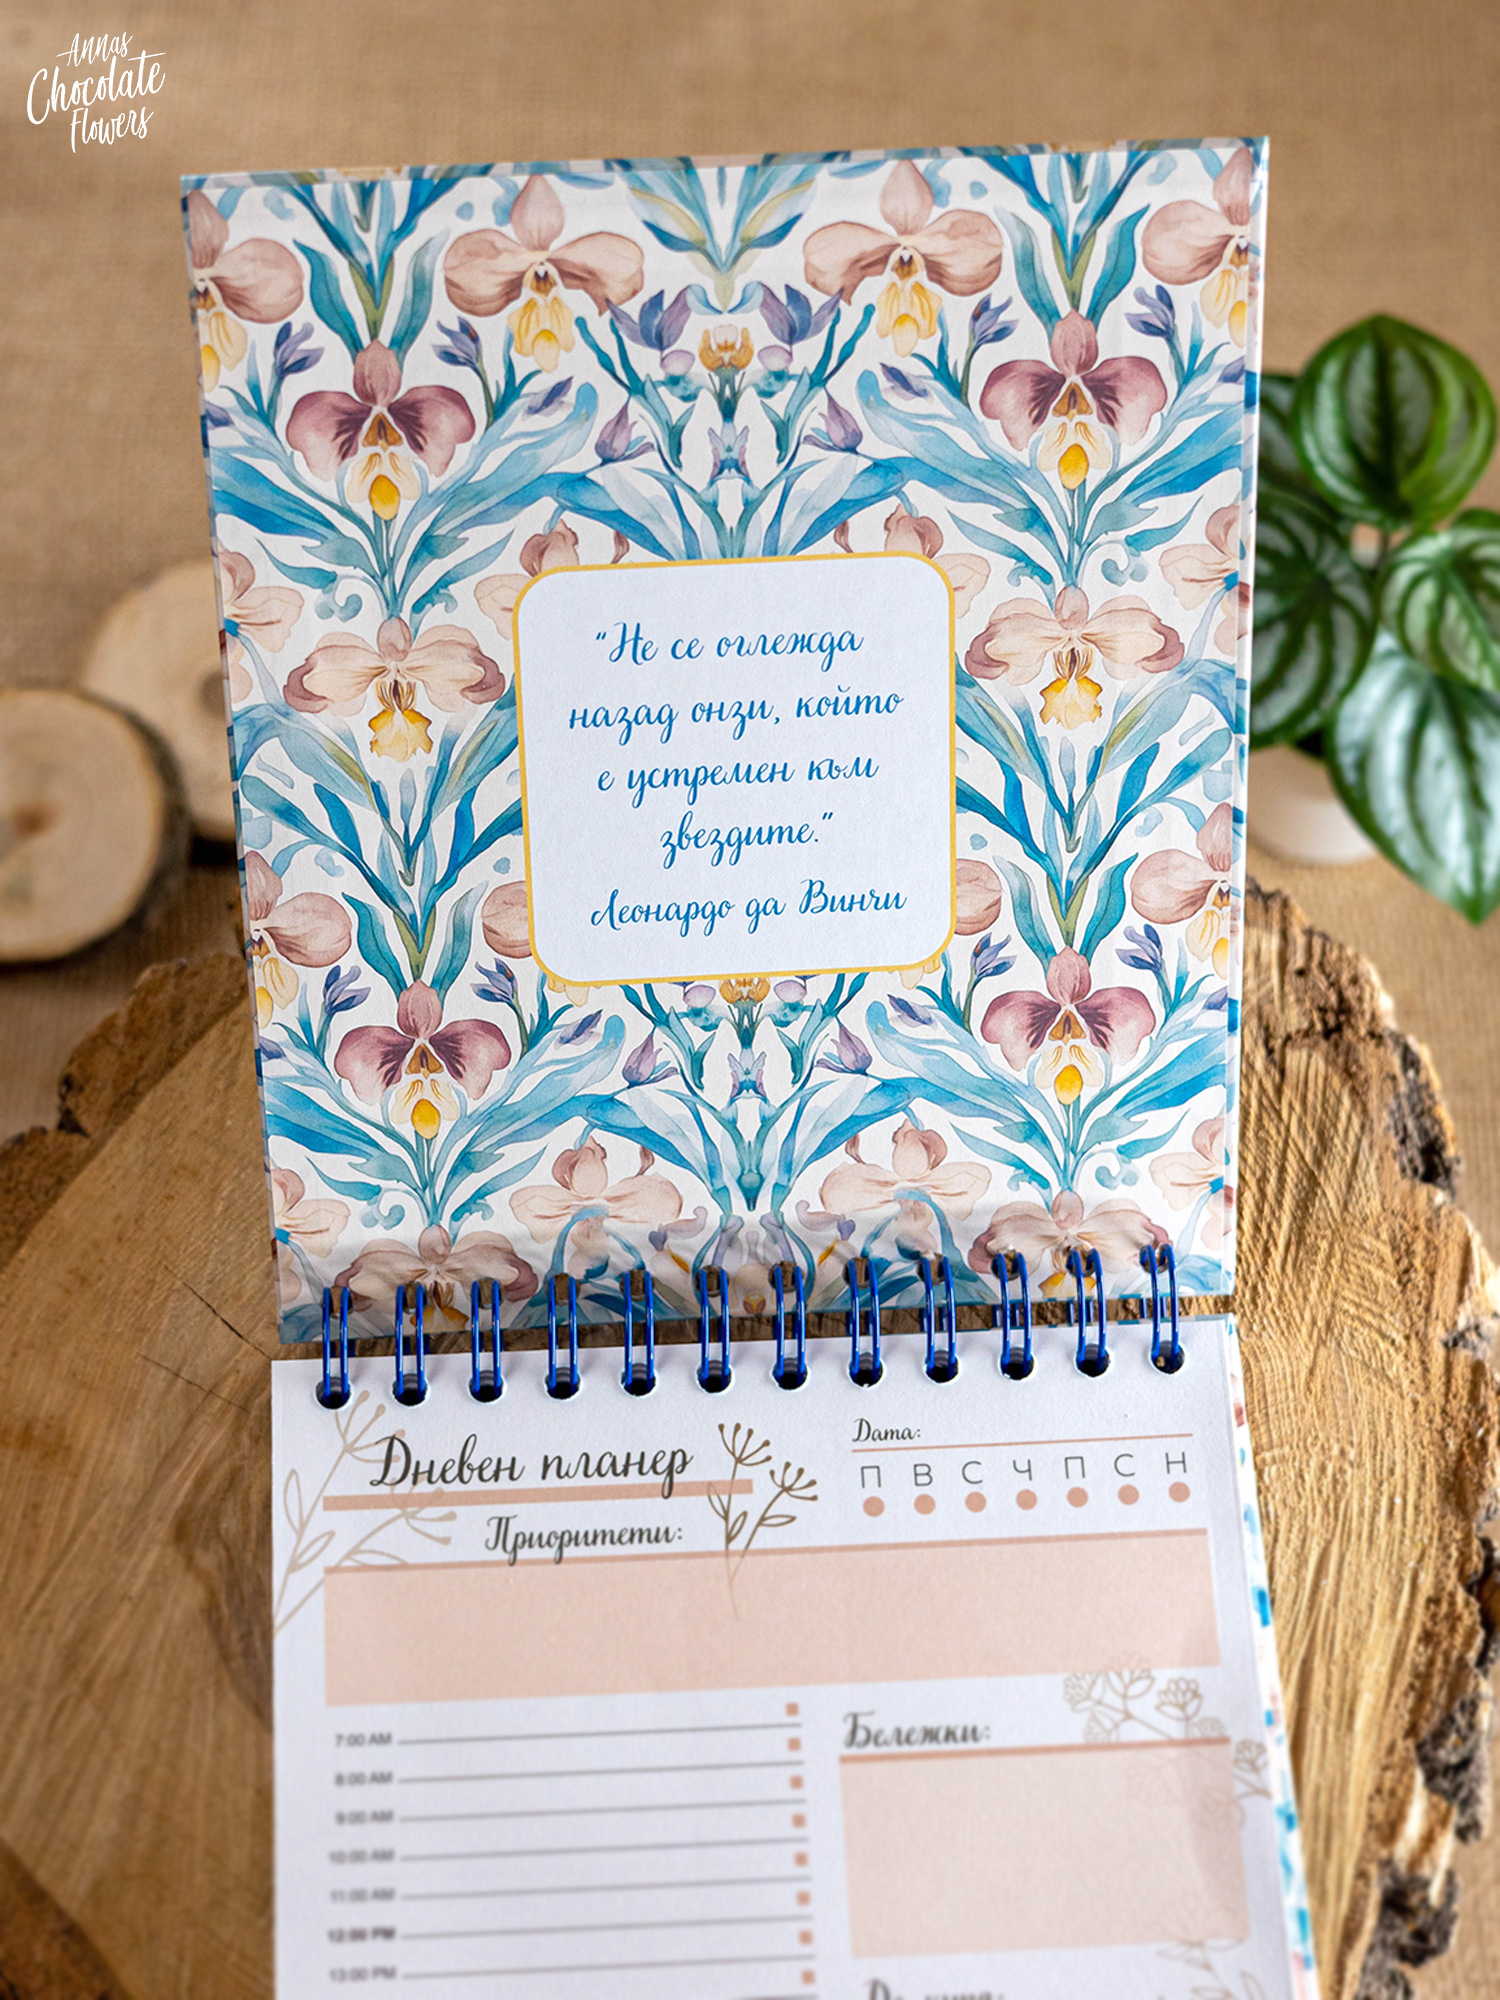 Annas
Chocolate
Flowers
“Не се оглежда
назад онзи, който
е устремен към
звездите.”
Леонардо да Винчи
Дневен планер
Дата:
П В С Ч П С Н
Приоритети:
7:00 AM
8:00 AM
9:00 AM
10:00 AM
11:00 AM
12:00 PM
13:00 PM
Бележки: